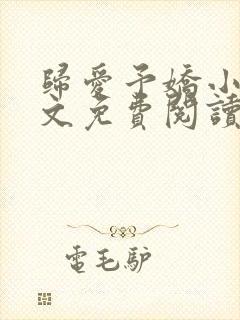 歸愛予嬌小
文免費閱讀
電毛驴